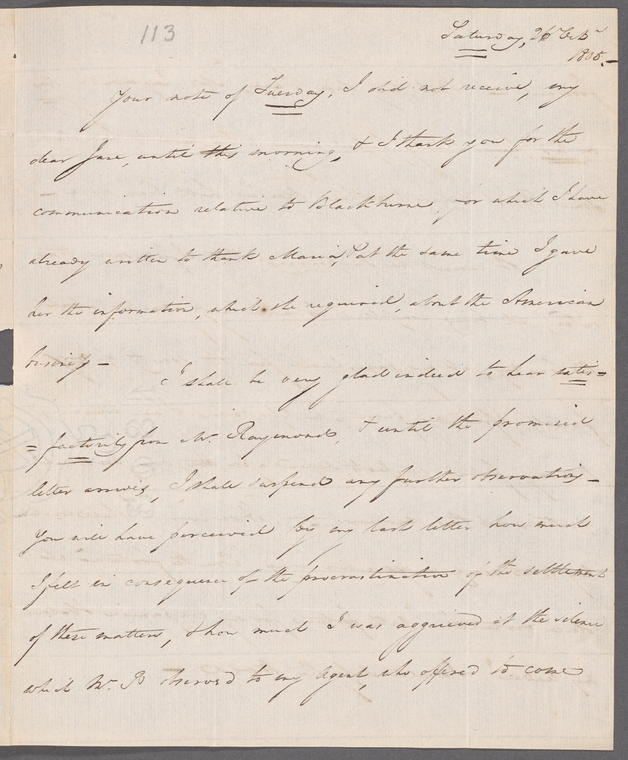 113
Saturday, 26 Octbr
1805.
Your note of Tuesday, I did not receive, my
dear Jane, until this morning, & I thank you for the
communication relative to Blackburne, for which I have
already written to thank Maria, & at the same time I gave
her the information, which she required, about the American
business – I shall be very glad indeed to hear satis=
=factorily from Mr. Raymond, & until the promised
letter arrives, I shall suspend any further observations –
You will have perceived by my last letter how much
I felt in consequence of the procrastination of the settlement
of these matters, & how much I was aggrieved at the silence
which Mr. B observed to my Agent, who offered to come